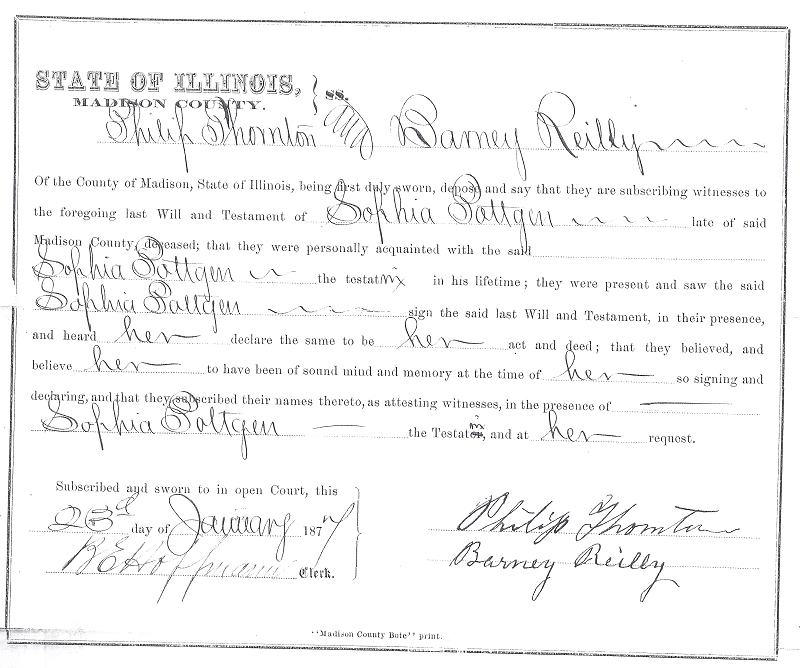 STATE OF ILLINOIS, } ss.
MADISON COUNTY.
Philip Thornton and Barney Reilly
Of the County of Madison, State of Illinois, being first duly sworn, depose and say that they are subscribing witnesses to
the foregoing last Will and Testament of Sophia Poltgen late of said
Madison County, deceased; that they were personally acquainted with the said
Sophia Poltgen the testatrix in his lifetime; they were present and saw the said
Sophia Poltgen sign the said last Will and Testament, in their presence,
and heard her declare the same to be her act and deed; that they believed, and
believe her to have been of sound mind and memory at the time of her so signing and
declaring, and that they subscribed their names thereto, as attesting witnesses, in the presence of
Sophia Poltgen the Testatrix, and at her request.
Subscribed and sworn to in open Court, this
23d day of January 1877
B E Hoffmann Clerk.
Philip Thornton
Barney Reilly
"Madison County Bote" print.